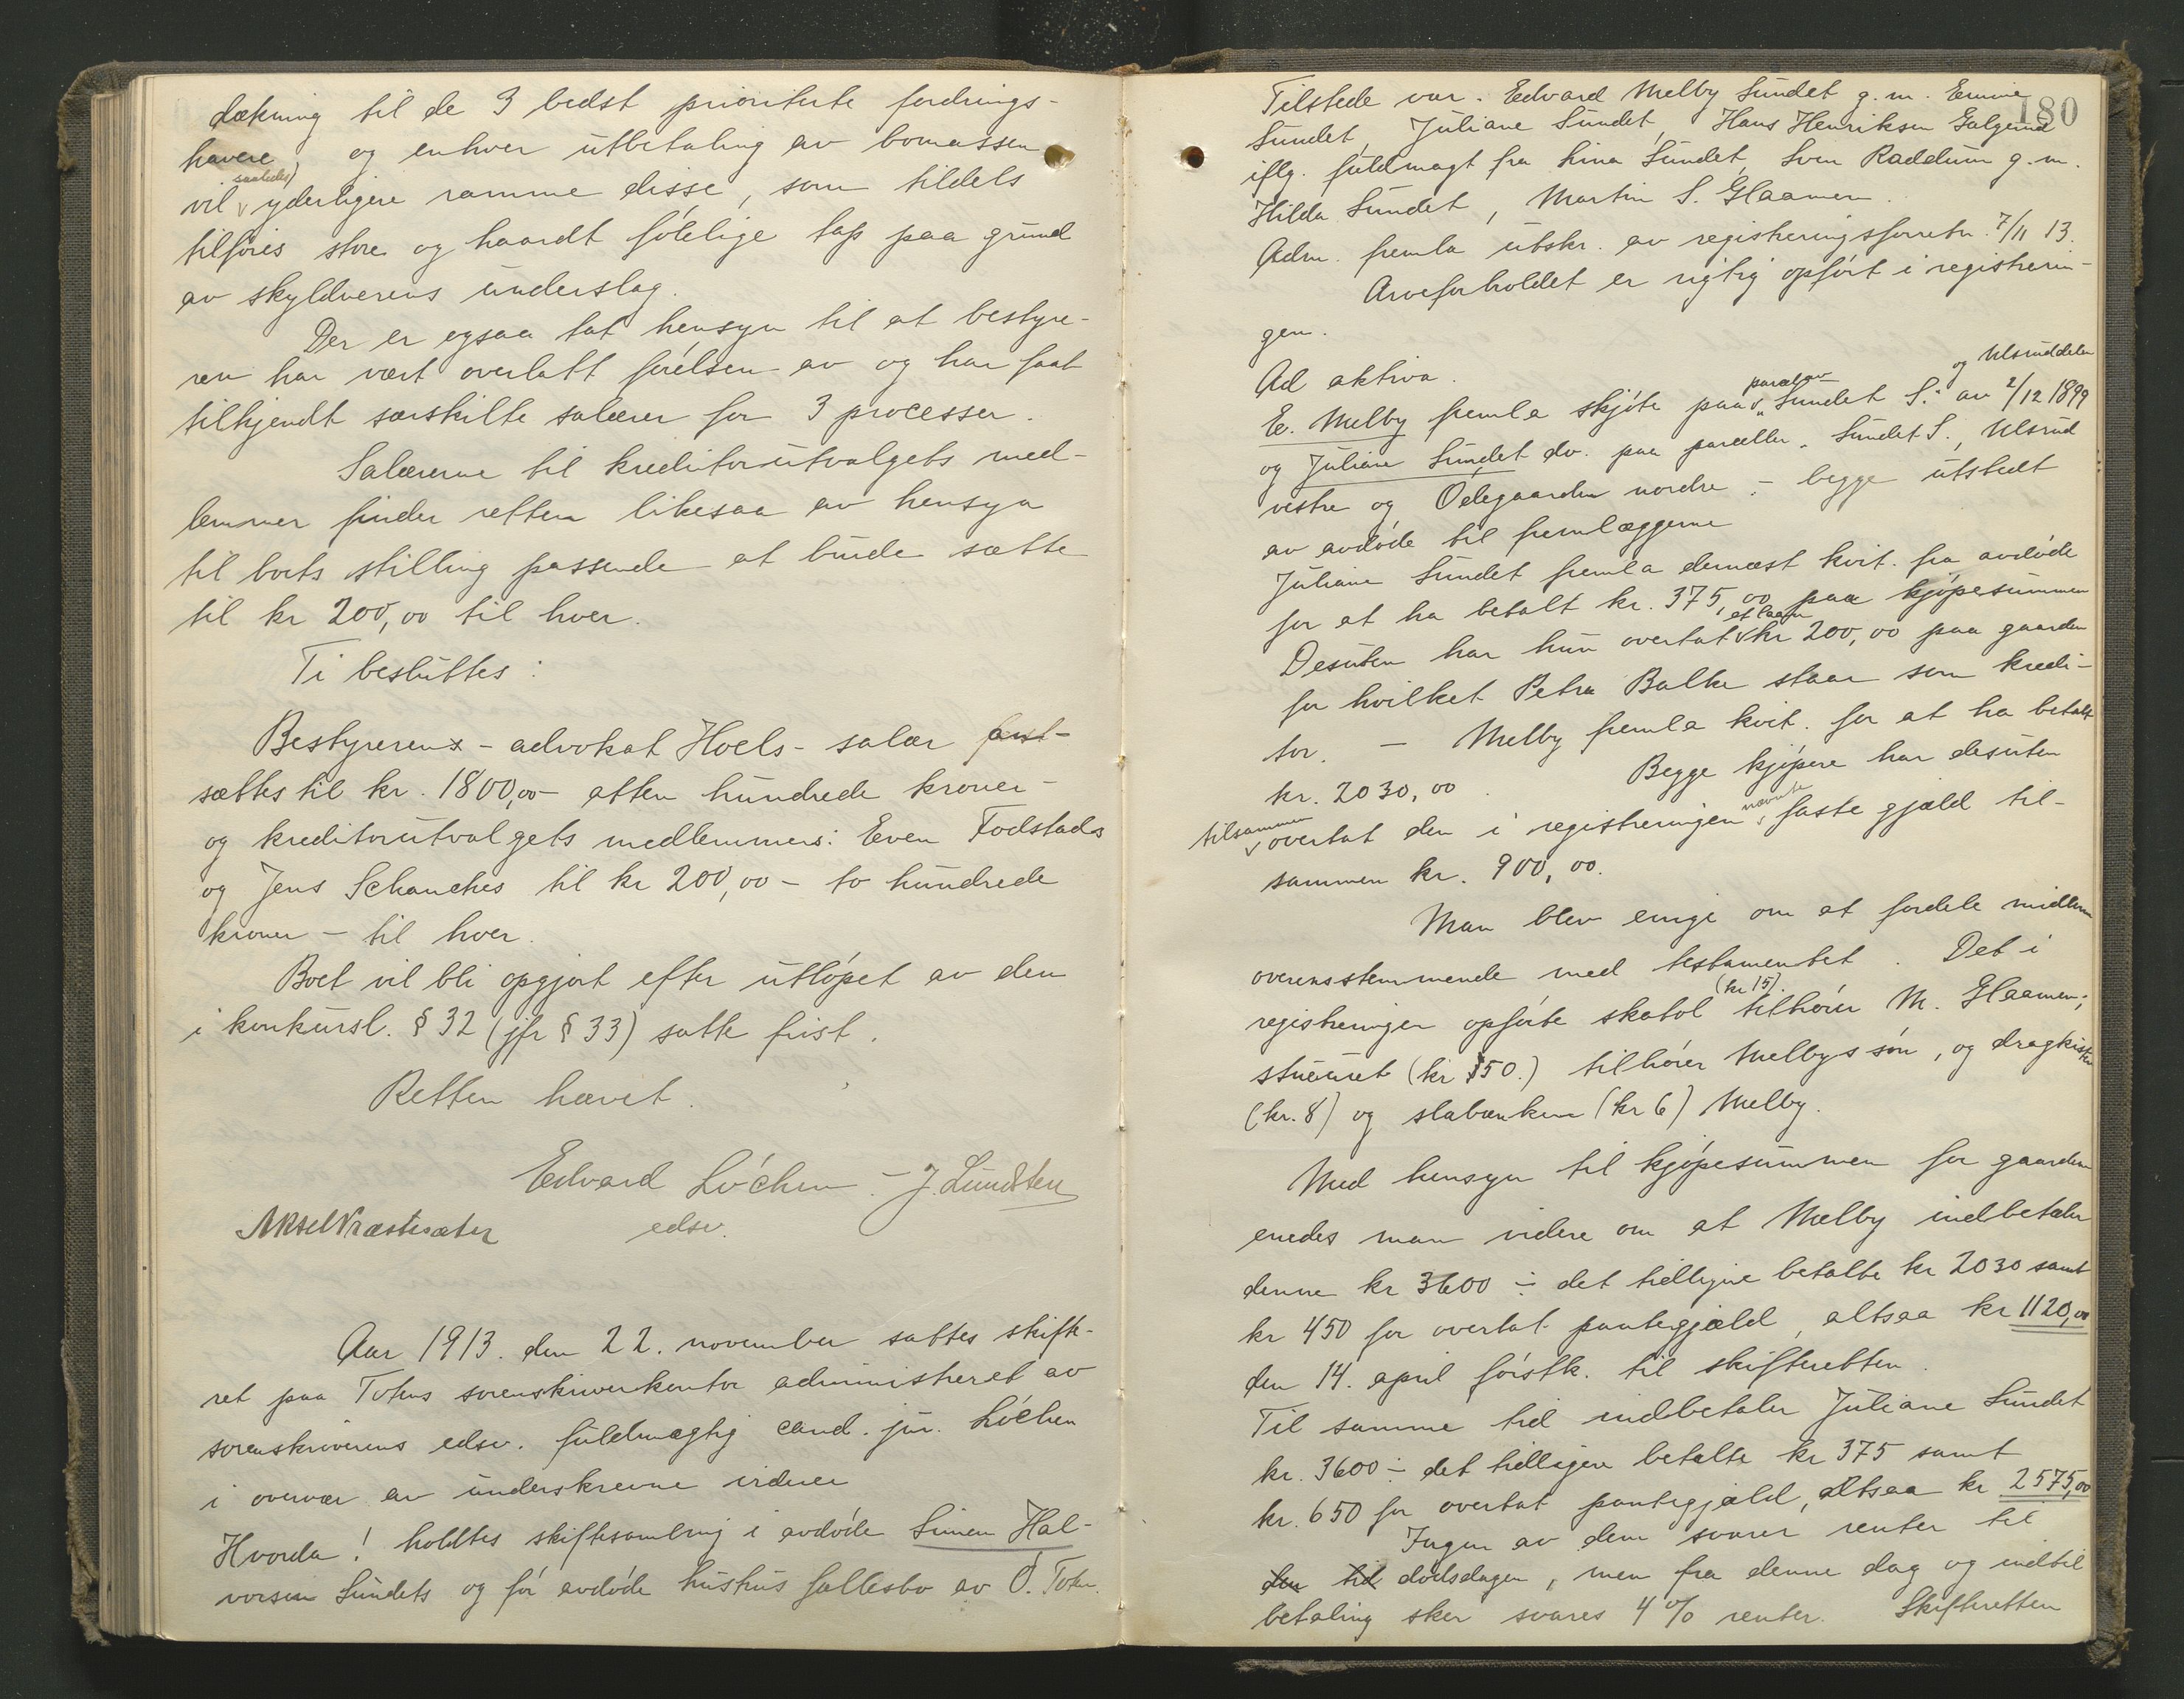 dækning til de 3 bedst prioriterte fordrings-
havere, og enhver utbetaling av bomassen
vil saaledes yderligere ramme disse, som tildels
tilføies store og haardt følelige tap paa grund
av skyldnerens underslag.
Der er ogsaa tat hensyn til at bestyre-
ren har vært overlatt førelsen av og har faat
tilkjendt særskilte salærer for 3 processer.
Salærerne til kreditorutvalgets med-
lemmer finder retten likesaa av hensyn
til boets stilling passende at burde sætte
til kr 200,00 til hver.
Ti besluttes:
Bestyrerens - advokat Hoels - salær fast-
sættes til kr. 1800,00 - atten hundrede kroner -
og kreditorutvalgets medlemmers: Even Fodstads
og Jens Schanches til kr 200,00 - to hundrede
kroner - til hver.
Boet vil bli opgjort efter utløpet av den
i konkursl. § 32 (jfr § 33) satte frist.
Retten hævet.
Edvard Løchen - J. Lundsten
Aksel Næstesæter edsv.
Aar 1913. den 22. november sattes skifte-
ret paa Totens sorenskriverkontor administreret av
sorenskriverens edsv. fuldmægtig cand. jur. Løchen
i overvær av underskrevne vidner
Hvorda! holdtes skiftesamling i avdøde Simen Hal-
vorsen Sundets og før avdøde hustrus fællesbo av Ø. Toten.
180
Tilstede var. Edvard Melby Sundet g.m. Emine
Sundet, Juliane Sundet, Hans Henriksen Galgerud
iflg. fuldmagt fra Lina Sundet, Sven Raddum g.m.
Hilda Sundet, Martin S. Glaamen.
Adm. fremla utskr. av registreringsforretn. 7/11 13.
Arveforholdet er rigtig opført i registrerin-
gen.
Ad aktiva.
E. Melby fremla skjøte paa parcel av "Sundet S." og Ulsruddelen av 2/12 1899
og Juliane Sundet do. paa parceller. Sundet S., Ulsrud
vestre og Ødegaarden nordre - begge utstedt
av avdøde til fremlæggerne
Juliane Sundet fremla dernæst kvit. fra avdøde
for at ha betalt kr. 375,00 paa kjøpesummen
Desuten har hun overtat et laan kr 200,00 paa gaarden
for hvilket Petra Balke staar som kredi-
tor. - Melby fremla kvit. for at ha betalt
kr. 2030,00. Begge kjøpere har desuten
tilsammen overtat den i registreringen nævnte faste gjæld til-
sammen kr. 900,00.
Man blev enige om at fordele midlerne
overensstemmende med testamentet. Det i
registreringen opførte skatol (kr 15). tilhører M. Glaamen;
stueuret (kr 50.) tilhører Melbys søn, og dragkisten
(kr. 8) og slabænken (kr 6) Melby.
Med hensyn til kjøpesummen for gaarden
enedes man videre om at Melby indbetaler
denne kr 3600 ÷ det tidligere betalte kr 2030 samt
kr 450 for overtat pantegjæld, altsaa kr 1120,00
den 14. april førstk. til skifteretten.
Til samme tid indbetaler Juliane Sundet
kr. 3600 ÷ det tidligere betalte kr 375 samt
kr. 650 for overtat pantegjæld, altsaa kr 2575,00
Ingen av dem svarer renter til
den tid dødsdagen, men fra denne dag og indtil
betaling sker svares 4 % renter. Skifteretten